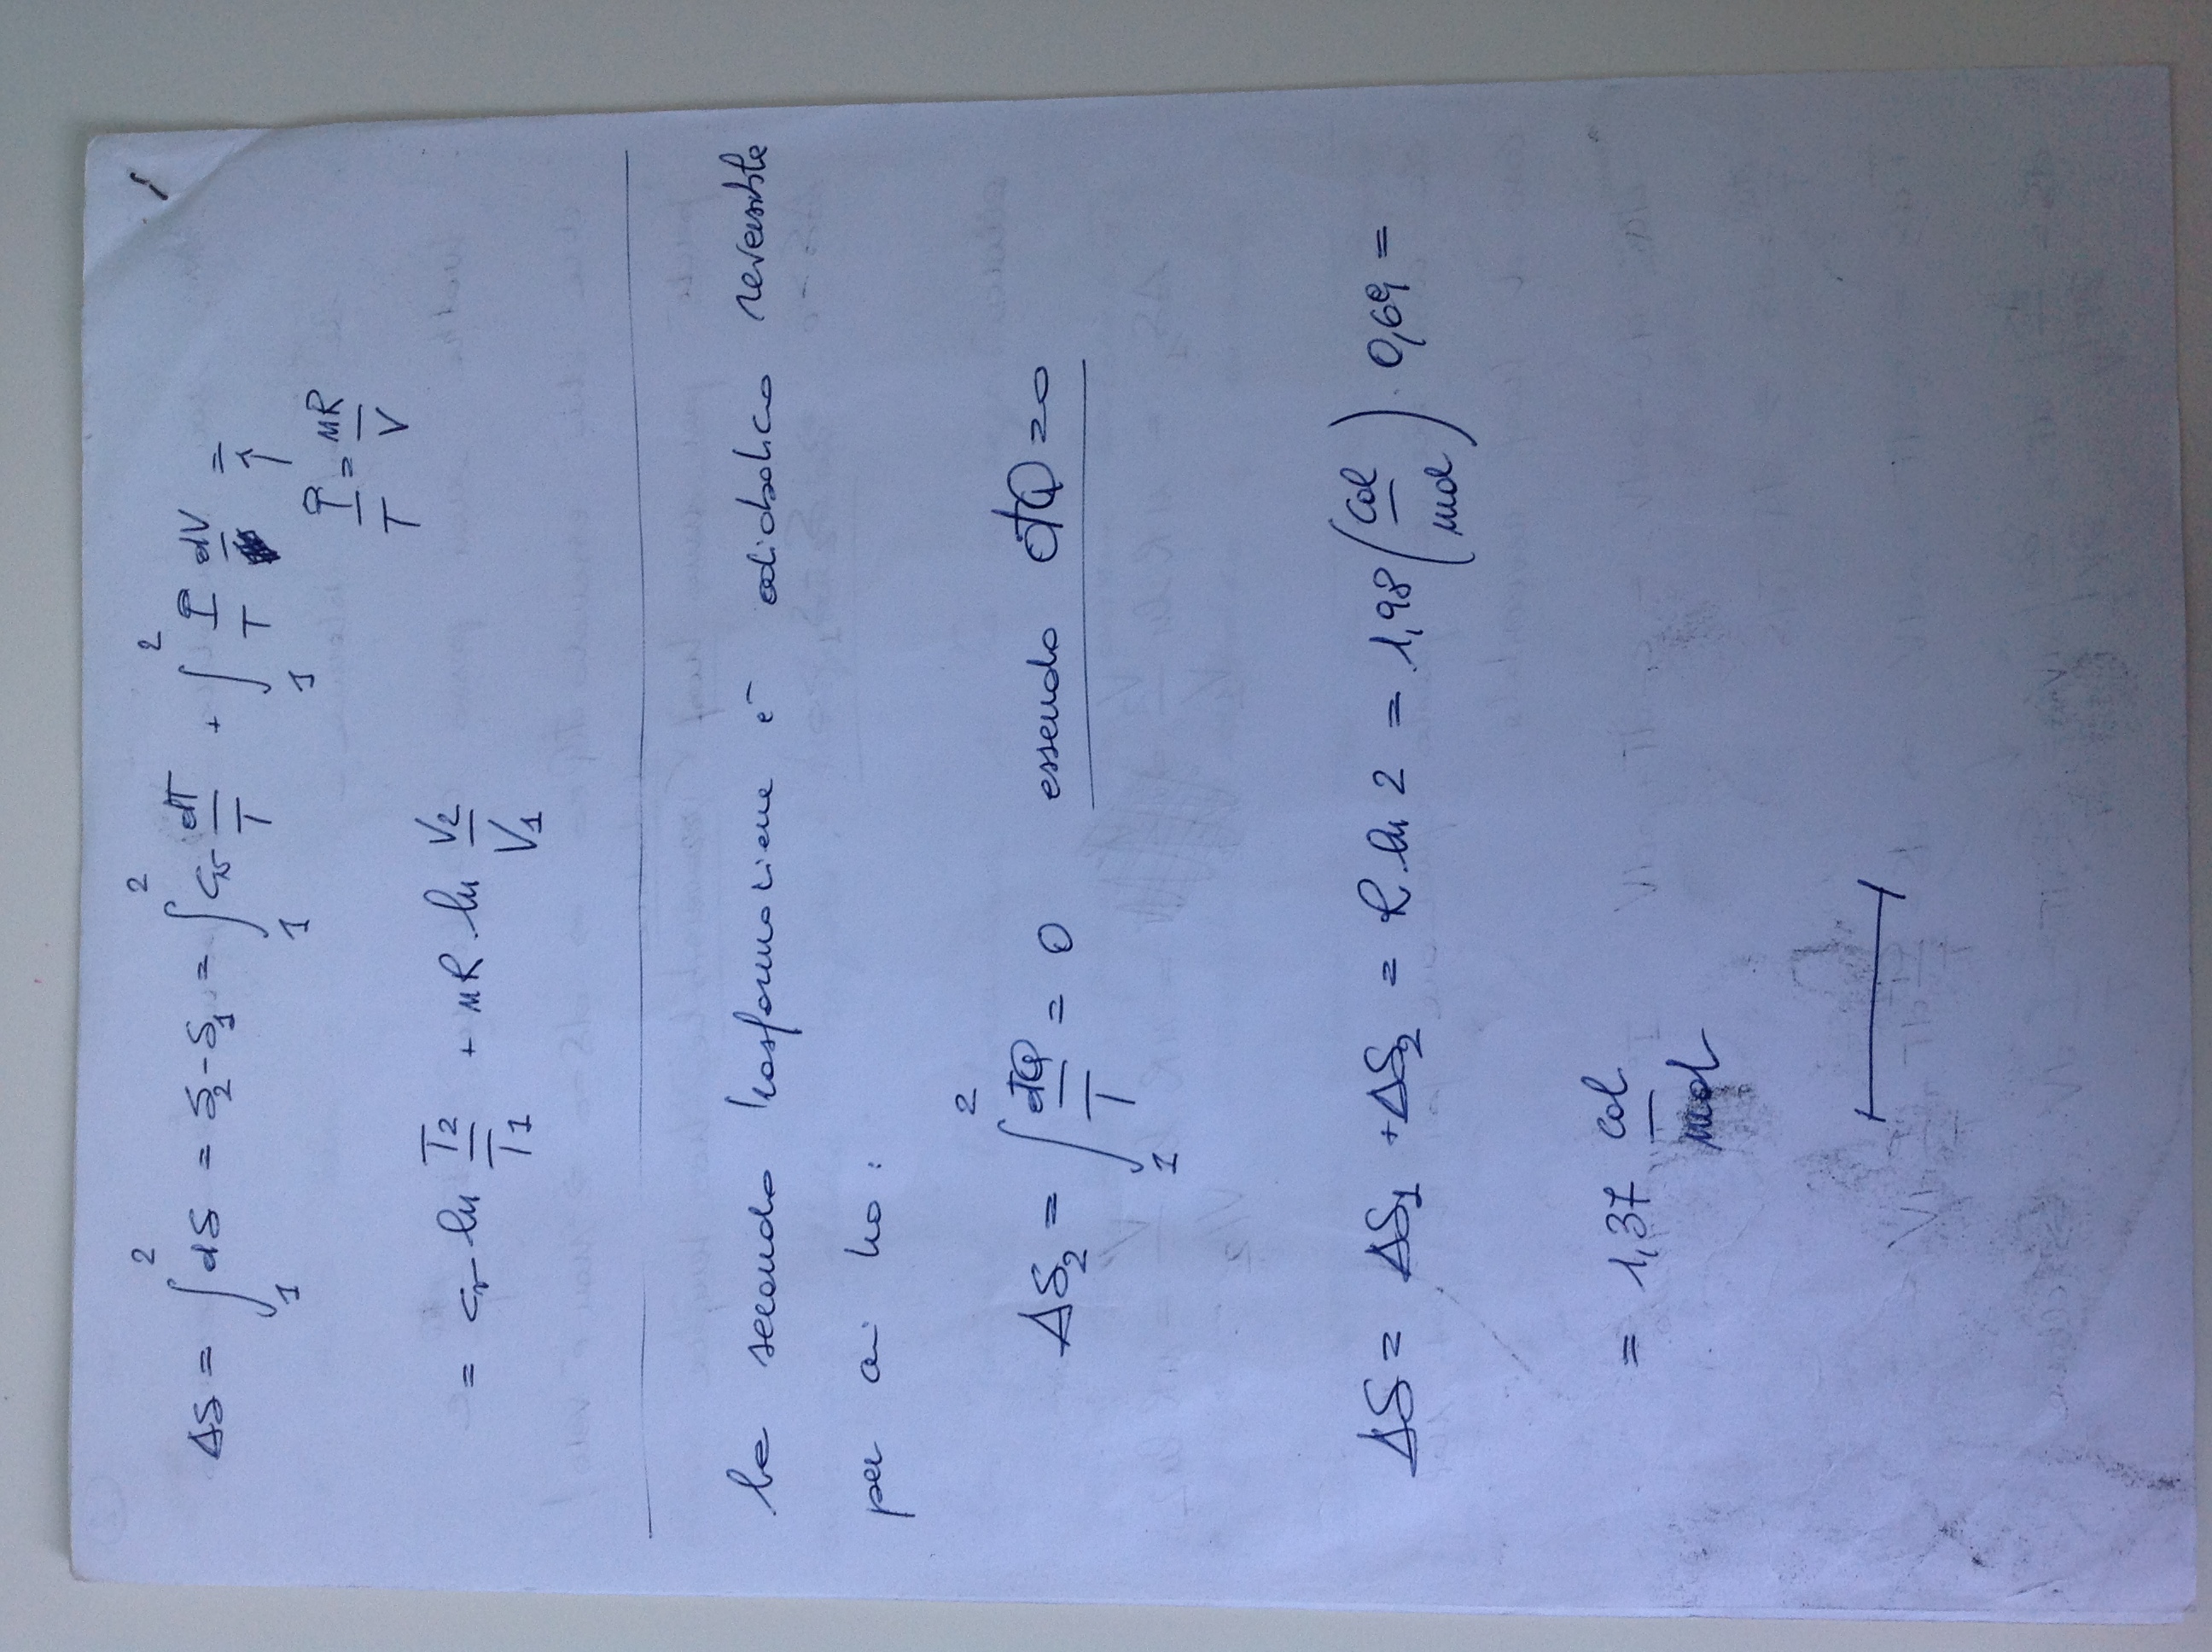 1
ΔS = ∫₁² dS = S₂ - S₁ = ∫₁² cᵥ dT/T + ∫₁² P/T dV =
↑
P/T = nR/V
= cᵥ ln T₂/T₁ + nR ln V₂/V₁
la seconda trasformazione è adiabatica reversibile
per cui ho:
ΔS₂ = ∫₁² đQ/T = 0 essendo đQ = 0
ΔS = ΔS₁ + ΔS₂ = R ln 2 = 1,98 (cal/mol) · 0,69 =
= 1,37 cal/mol